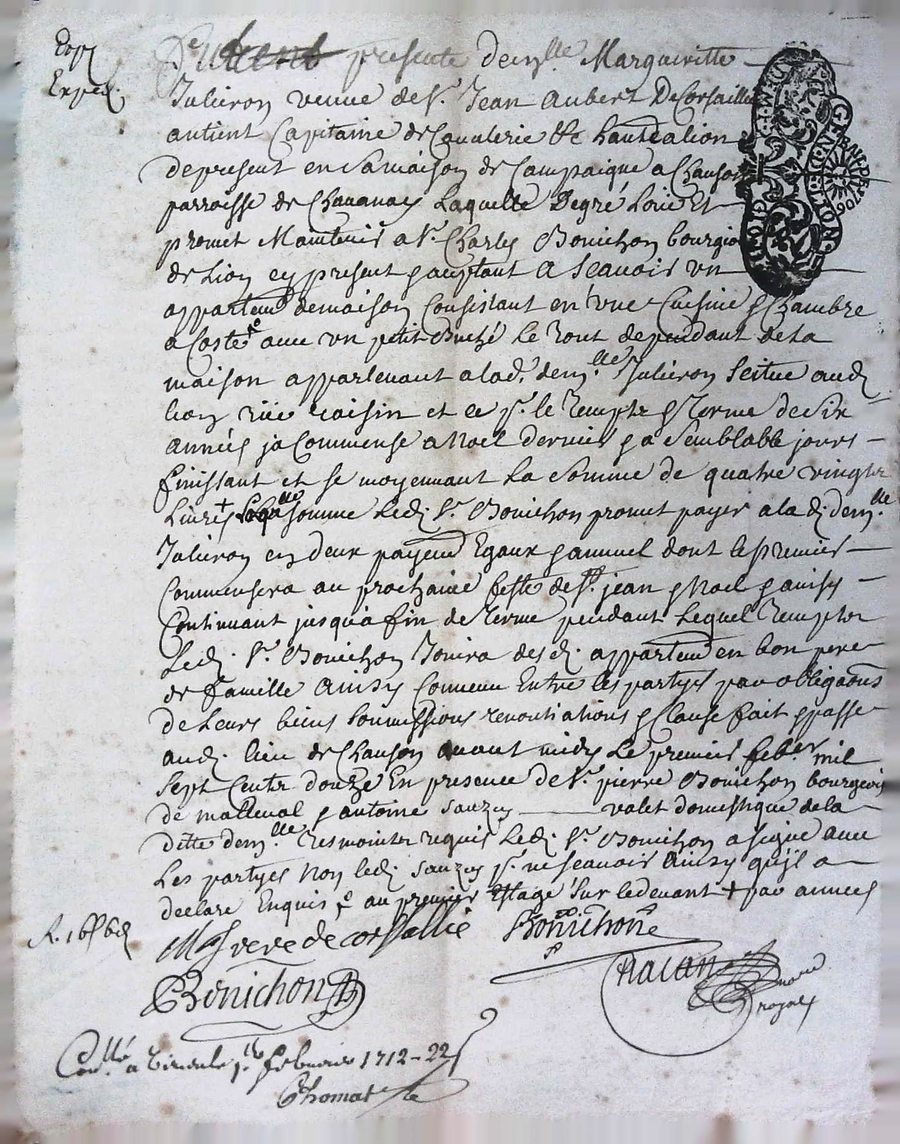 Exp.
presente dem.lle Margueritte
Julieron veuve de Sr. Jean Aubert De Corsaille
antient Capitaine de Cavalerie
de present en sa maison de Campaigne a Chanson
parroisse de Chavanay Laquelle Degré Loüe Et
promet Maintenir a Sr. Charles Bonichon bourgiois
de Lion cy present & auptant A Scavoir un
appartemt de maison Consistant en une Cuisine & Chambre
a Costé avec un petit Buché Le tout dependant de la
maison appartenant a lad. dem.lle Julieron Scitue aud.
lion rüe raisin et ce pr. le temptz & terme de Six
années ja Commense a Noel dernier & a Semblable jours
finissant et se moyennant La Somme de quatre vingtz
Livres + somme Led. Sr. Bonichon promet payer a la d. dem.lle
Julieron en deux payemt Egaux & annuel dont le premier
Commensera au prochaine feste de St. jean & Noel & ainsy
Continuant jusqu'a fin de terme pendant Lequel temptz
Led. Sr. Bonichon Jouira des d. appartemt en bon pere
de famille Ainsy Convenu Entre les partyes par obligaons
de Leurs biens Soumissions renontiations & Clause fait & passe
aud. lieu de Chanson avant midy Le premier feb.er mil
Sept Centz douze En presence de Sr. pierre Bonichon bourgeois
de malleval & antoine Sauzey valet domestique de la
ditte dem.lle tesmointz requis Led. Sr. Bonichon a signe avec
Les partyes Non led. Sauzey pr. ne Scavoir Ainsy qu'il a
declaré Enquis & au premier Estage Sur ledevant + par années
Bonichon
Bonichon
racan no.re
royal
Con.llé a le 1er febvrier 1712
Thomas
GEN. DE LYON